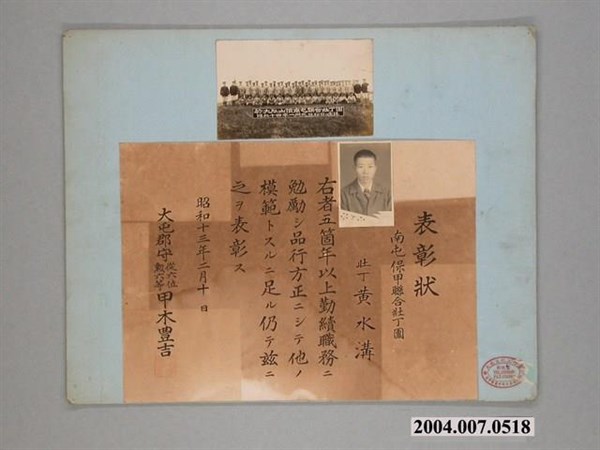 表彰狀
南屯保甲聯合壯丁團
壯丁 黄水溝
右者五箇年以上勤續職務ニ
勉勵シ品行方正ニシテ他ノ
模範トスルニ足ル仍テ兹ニ
之ヲ表彰ス
昭和十三年二月十日
大屯郡守 從六位勳六等 甲木豊吉
2004.007.0518